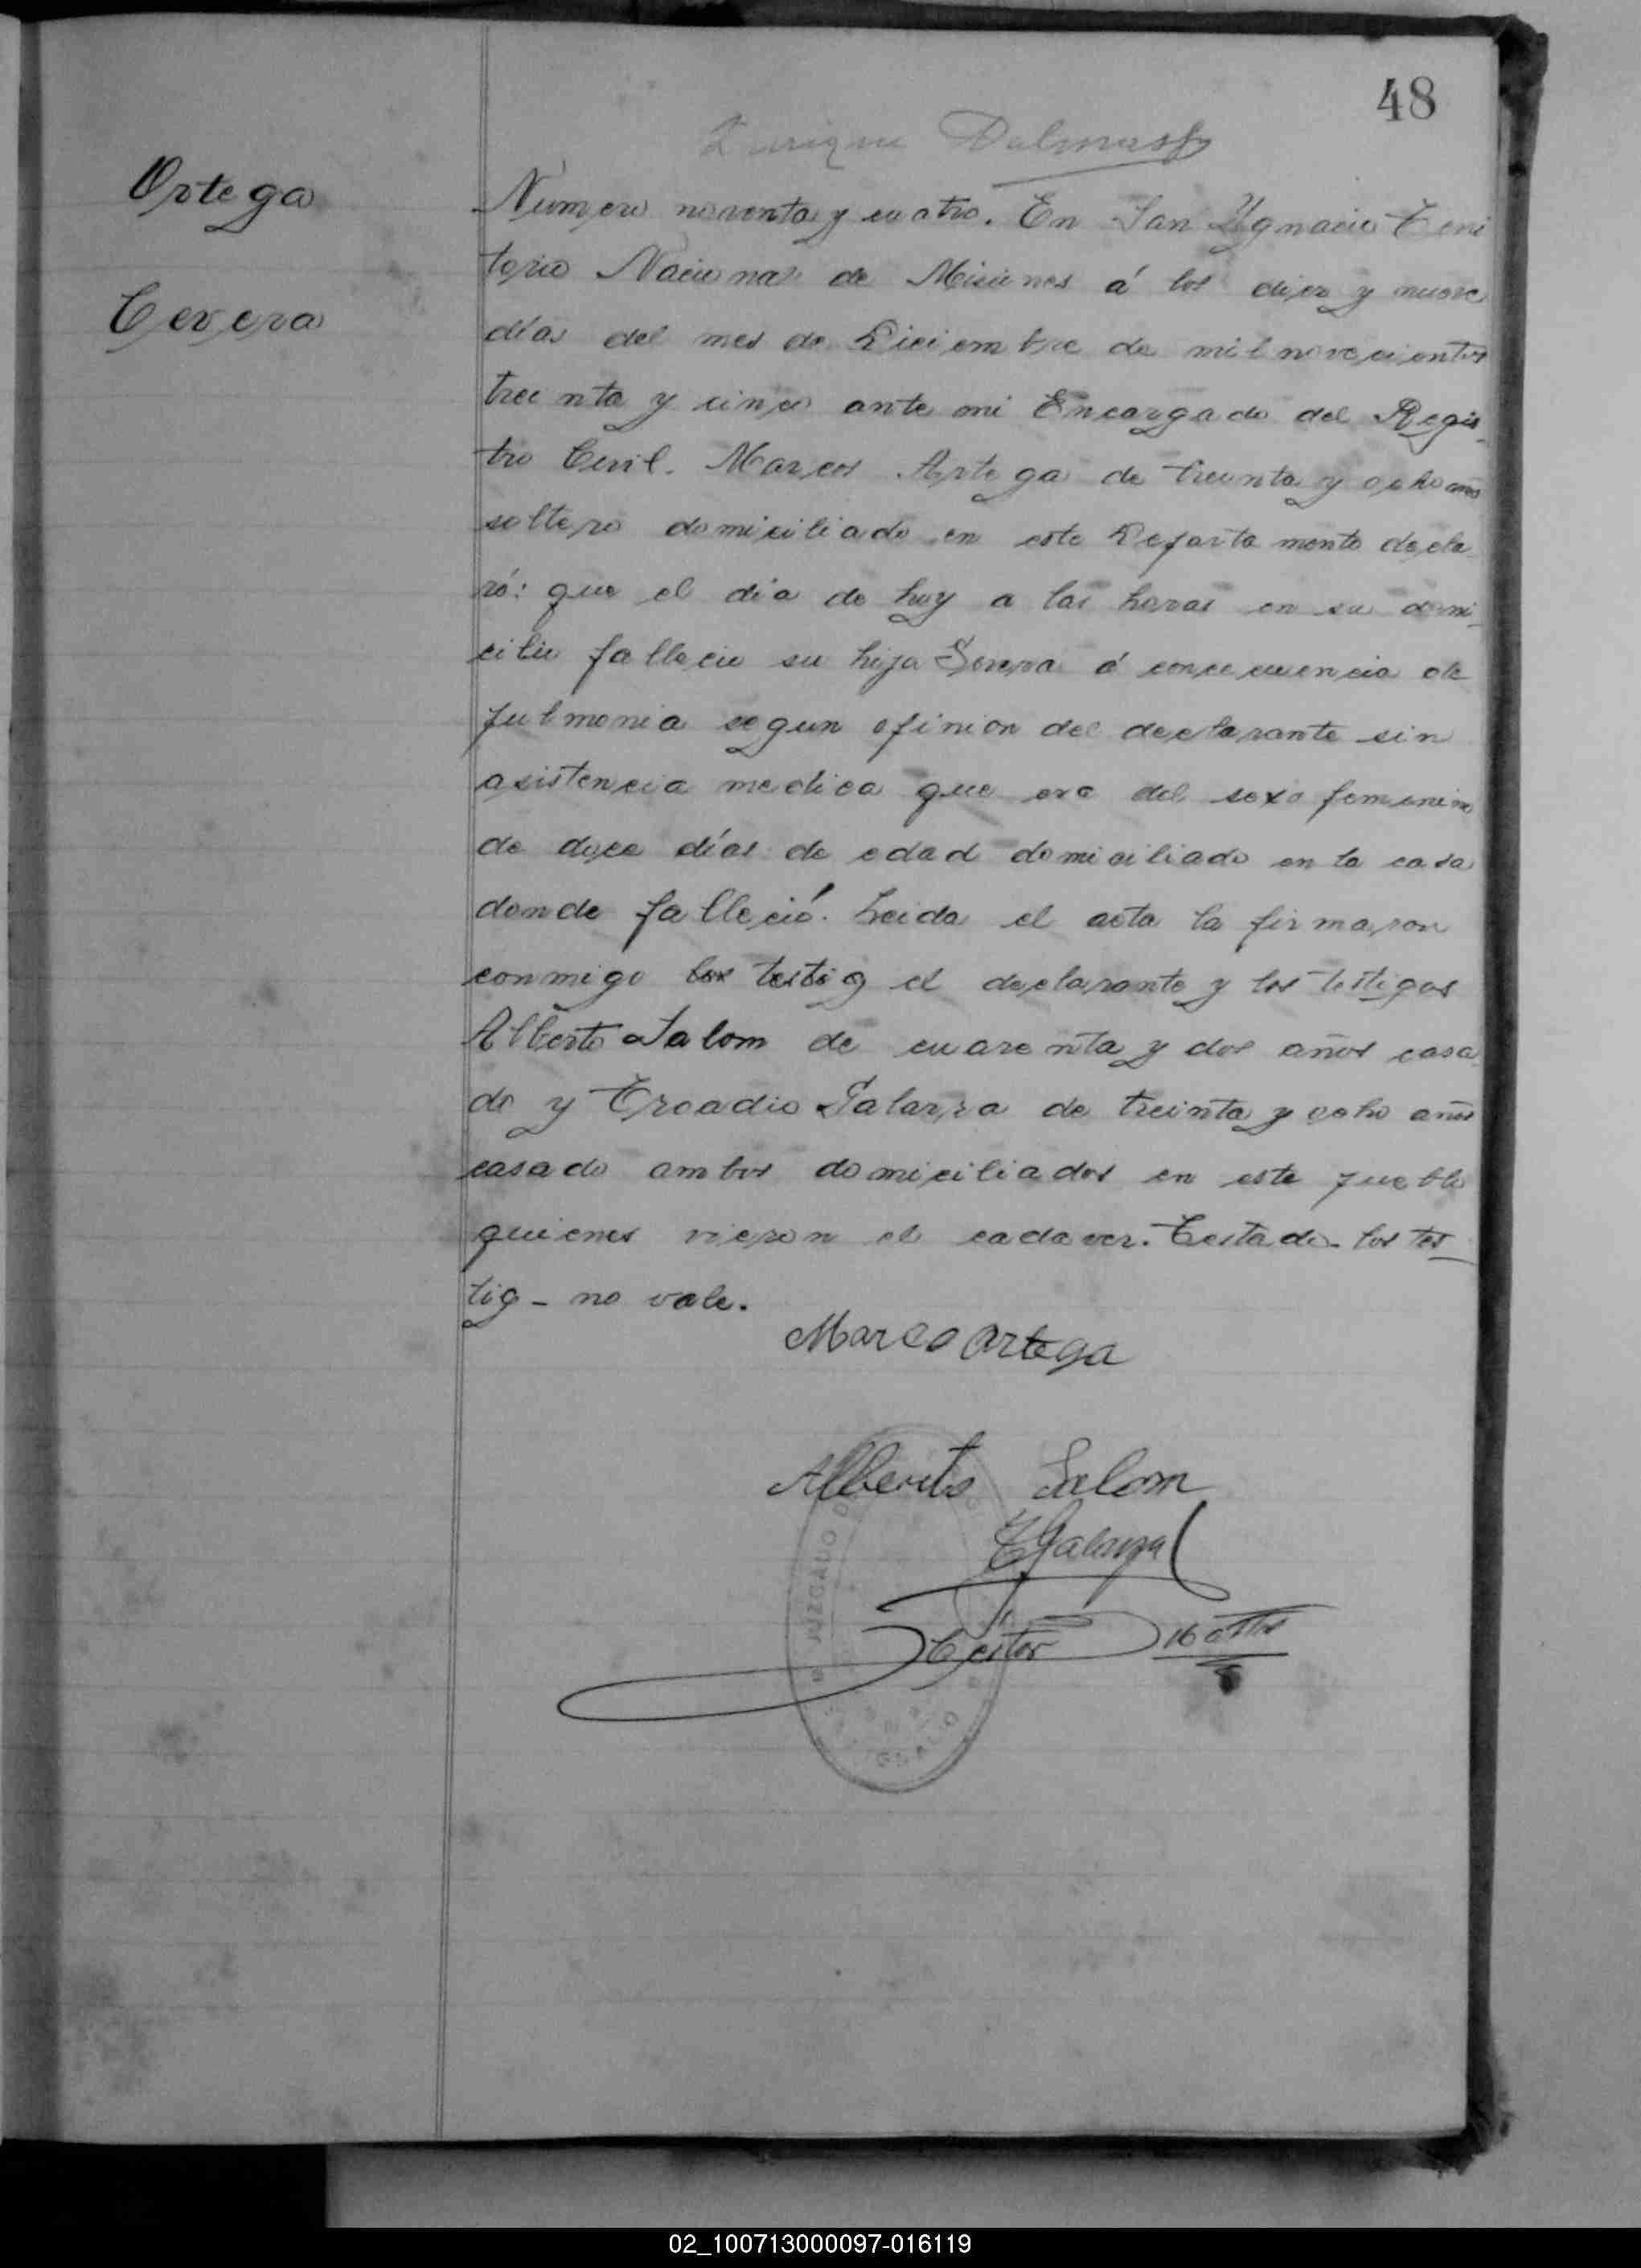 48
Enrique Dalmas
Ortega
Cevera
Número noventa y cuatro. En San Ygnacio Terri
torio Nacional de Misiones á los diez y nueve
días del mes de Diciembre de mil novecientos
treinta y cinco ante mi Encargado del Regis
tro Civil. Marcos Artega de treinta y ocho años
soltero domiciliado en este Departamento decla
ró: que el día de hoy a las horas en su domi
cilio fallecio su hija á concecuencia de
pulmonia segun opinion del declarante sin
asistencia medica que era del sexo femenino
de doce días de edad domiciliado en la casa
donde falleció. Leida el acta la firmaron
conmigo los testig el declarante y los testigos
Alberto Salom de cuarenta y dos años casa
do y Galarza de treinta y ocho años
casado ambos domiciliados en este pueblo
quienes vieron el cadaver. Testado - los tes
tig - no vale.
Marco Ortega
Alberto Salom
Galarza
JUZGADO DE
02_100713000097-016119